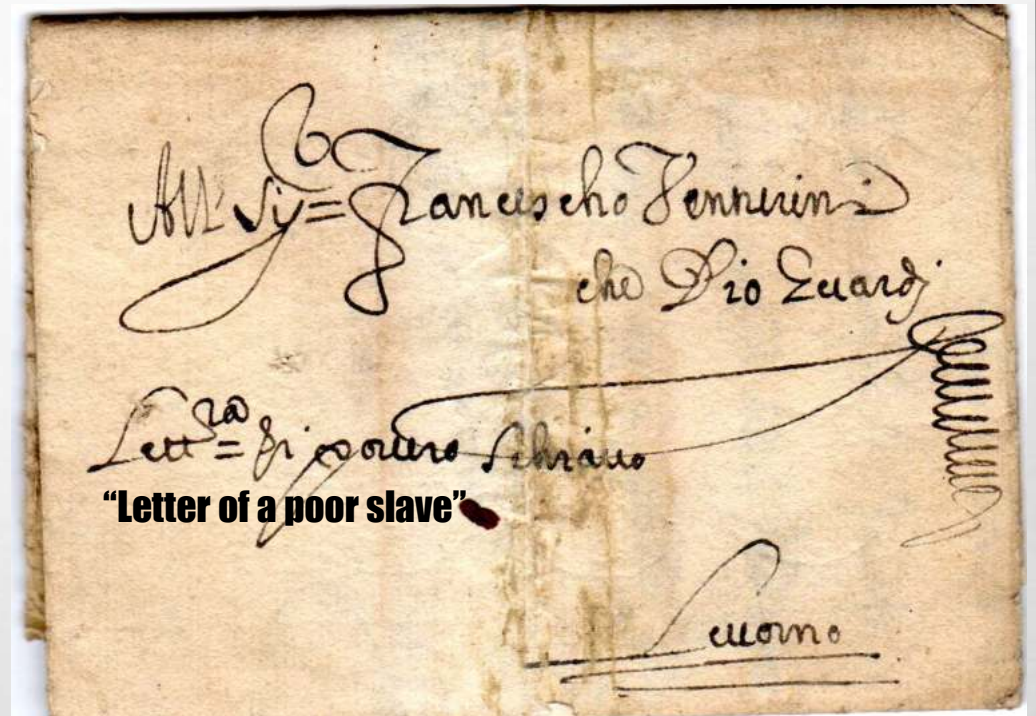 All' Sig= Francescho Vennerini
che Dio Guardj
Lett=ra di povero Schiavo
“Letter of a poor slave”
Livorno